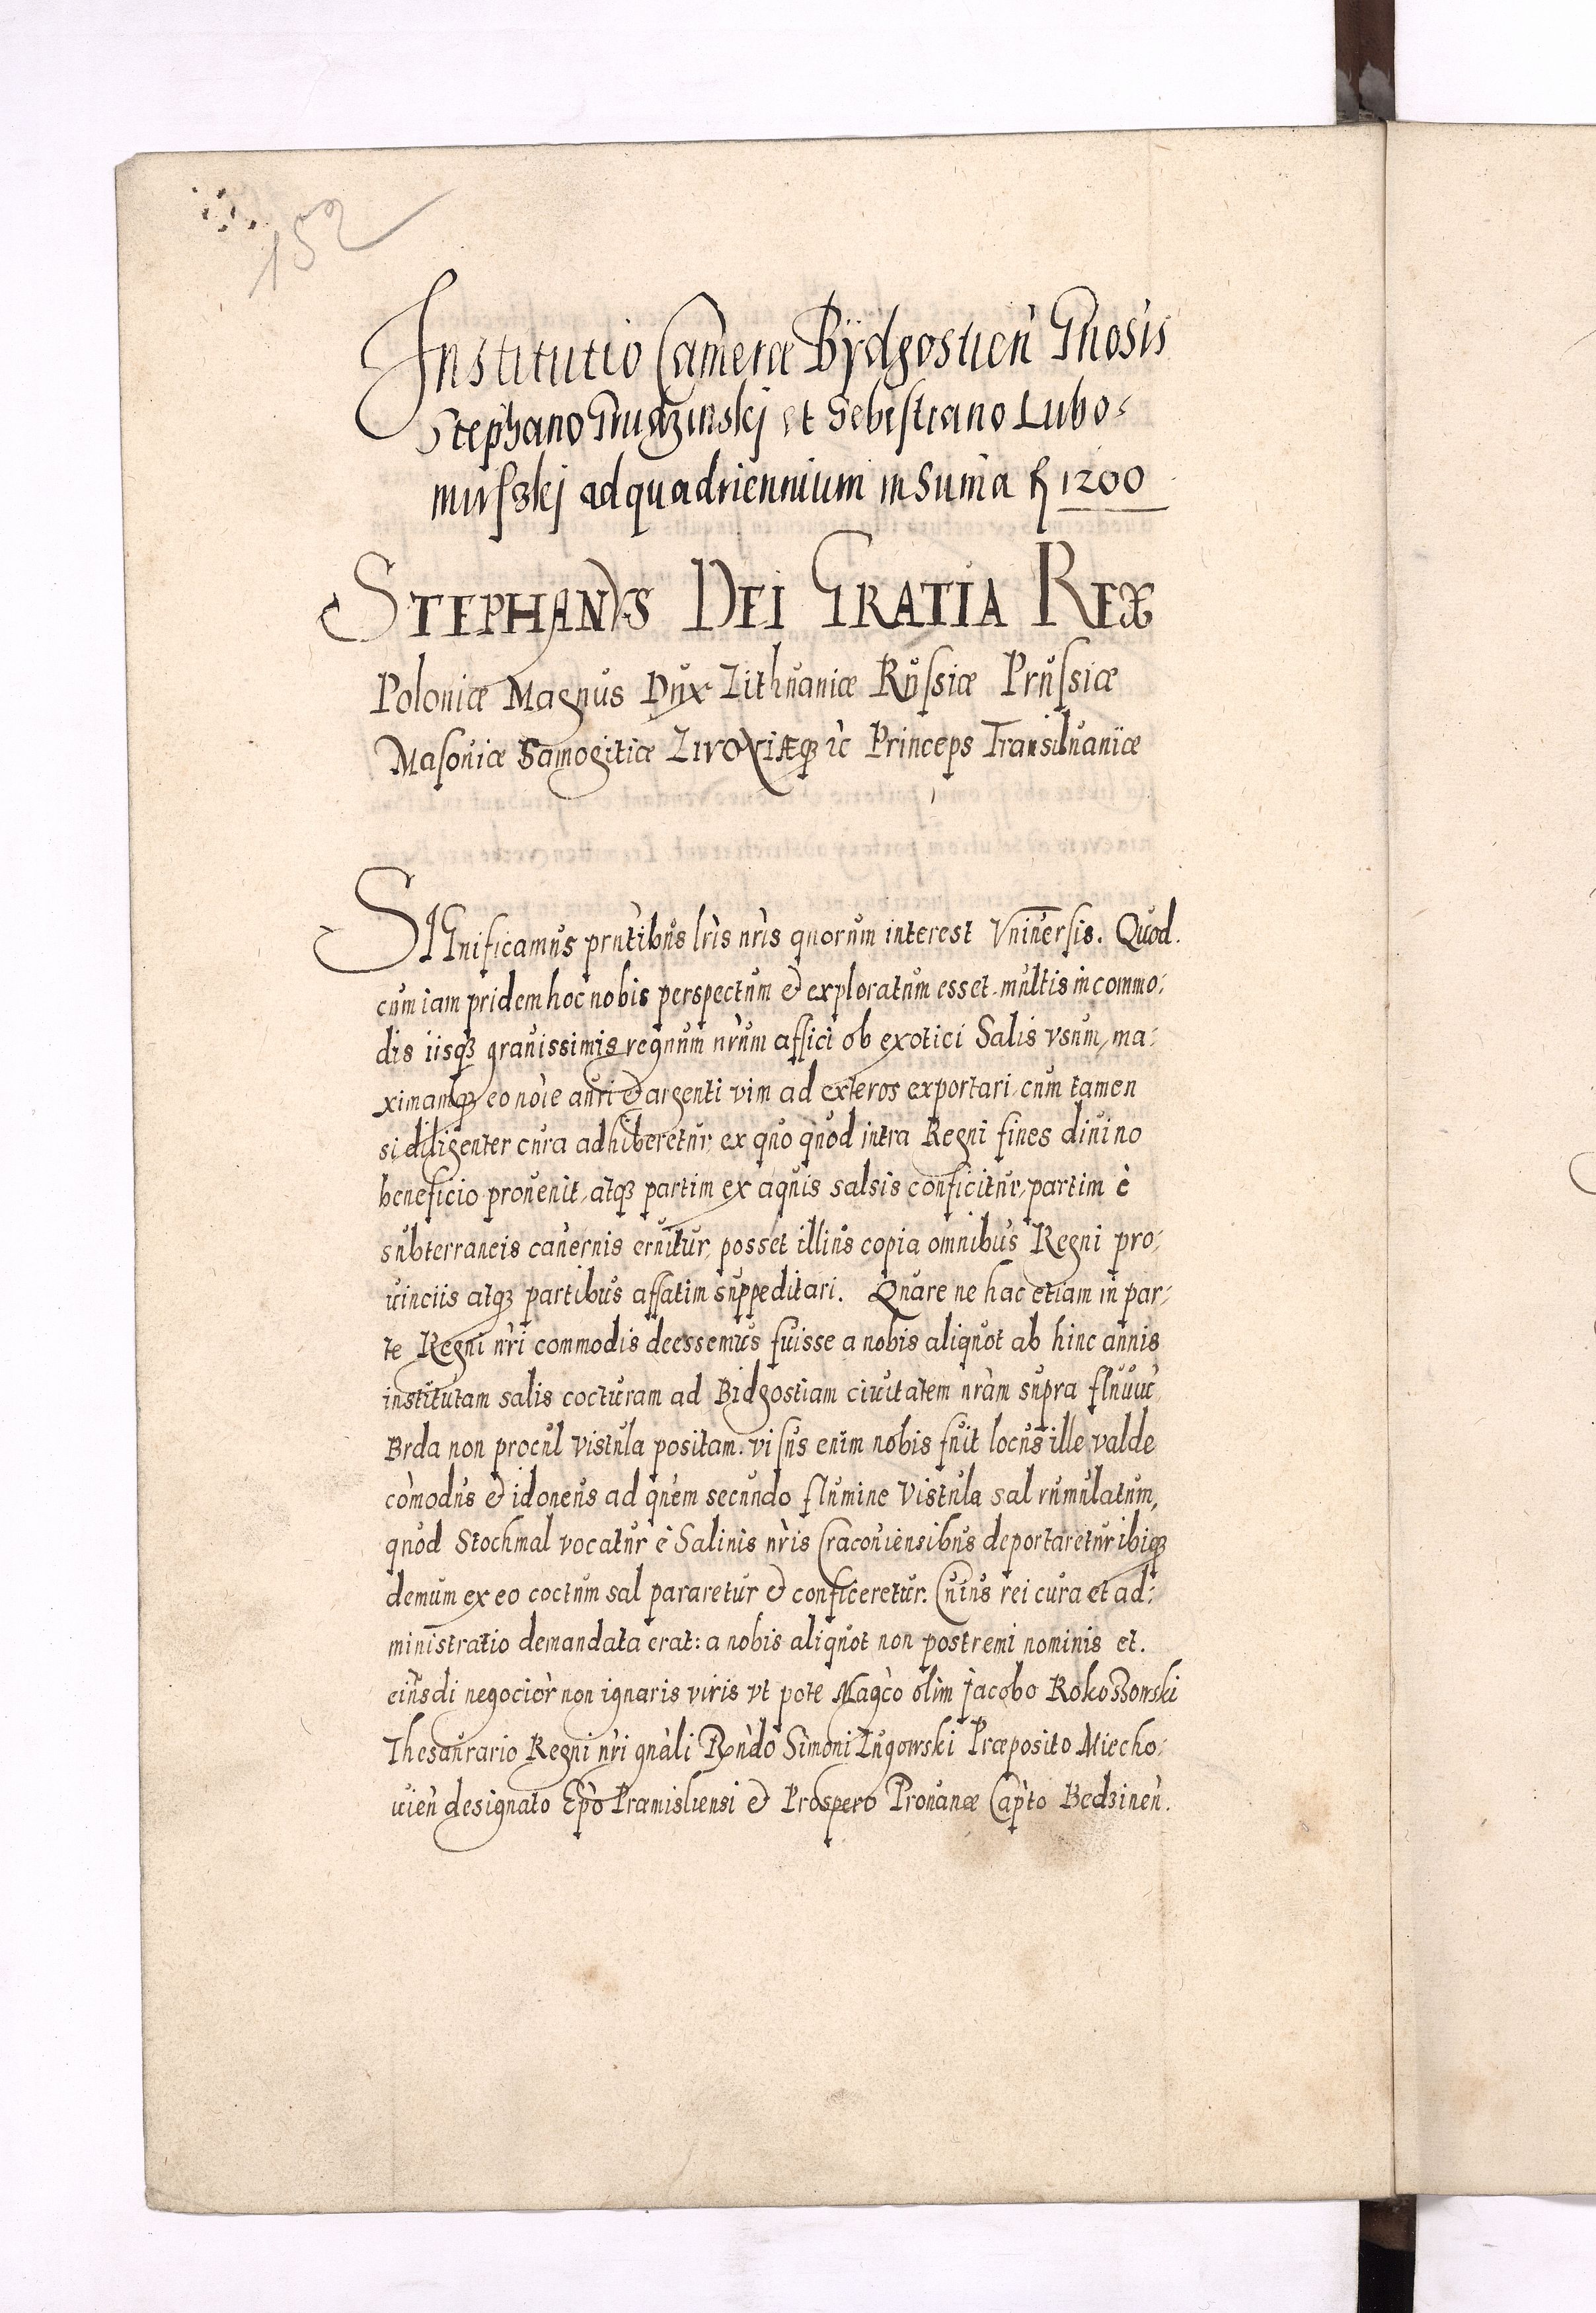 152
Institutio Camerae Bydgostien Gnosis
Stephano Grudzinskj et Sebestiano Lubo-
mirsskj ad quadriennium in Suma fl 1200
STEPHANVS DEI GRATIA REX
Poloniæ Magnus Dux Lithuaniæ Russiæ Prussiæ
Masouiæ Samogitiæ LIVONIÆq3 ic Princeps Transiluaniæ
SIGnificamus prntibus lris nris quorum interest Vniuersis. Quod.
cum iam pridem hoc nobis perspectum & exploratum esset multis incommo-
dis iisq3 grauissimis regnum nrum affici ob exotici Salis vsum, ma-
ximamq3 eo noie auri & argenti vim ad exteros exportari, cum tamen
si diligenter cura adhiberetur, ex quo quod intra Regni fines diuino
beneficio prouenit, atq3 partim ex aquis salsis conficitur, partim è
subterraneis cauernis eruitur, posset illius copia omnibus Regni pro-
uinciis atq3 partibus affatim suppeditari. Quare ne hac etiam in par-
te Regni nri commodis deessemus fuisse a nobis aliquot ab hinc annis
institutam salis cocturam ad Bidgostiam ciuitatem nram supra fluuiu
Brda non procul Vistula positam. visus enim nobis fuit locus ille valde
comodus & idoneus ad quem secundo flumine Vistula sal rumulatum,
quod Stochmal vocatur è Salinis nris Cracouiensibus deportaretur ibiq3
demum ex eo coctum sal pararetur & conficeretur. Cuius rei cura et ad-
ministratio demandata erat: a nobis aliquot non postremi nominis et.
eiusdi negocior non ignaris viris vt pote Magco olim Jacobo Rokossowski
Thesaurario Regni nri gnali Rndo Simoni Lugowski Præposito Miecho-
uien designato Epo Præmisliensi & Prospero Prouanæ Capto Bedzinen.